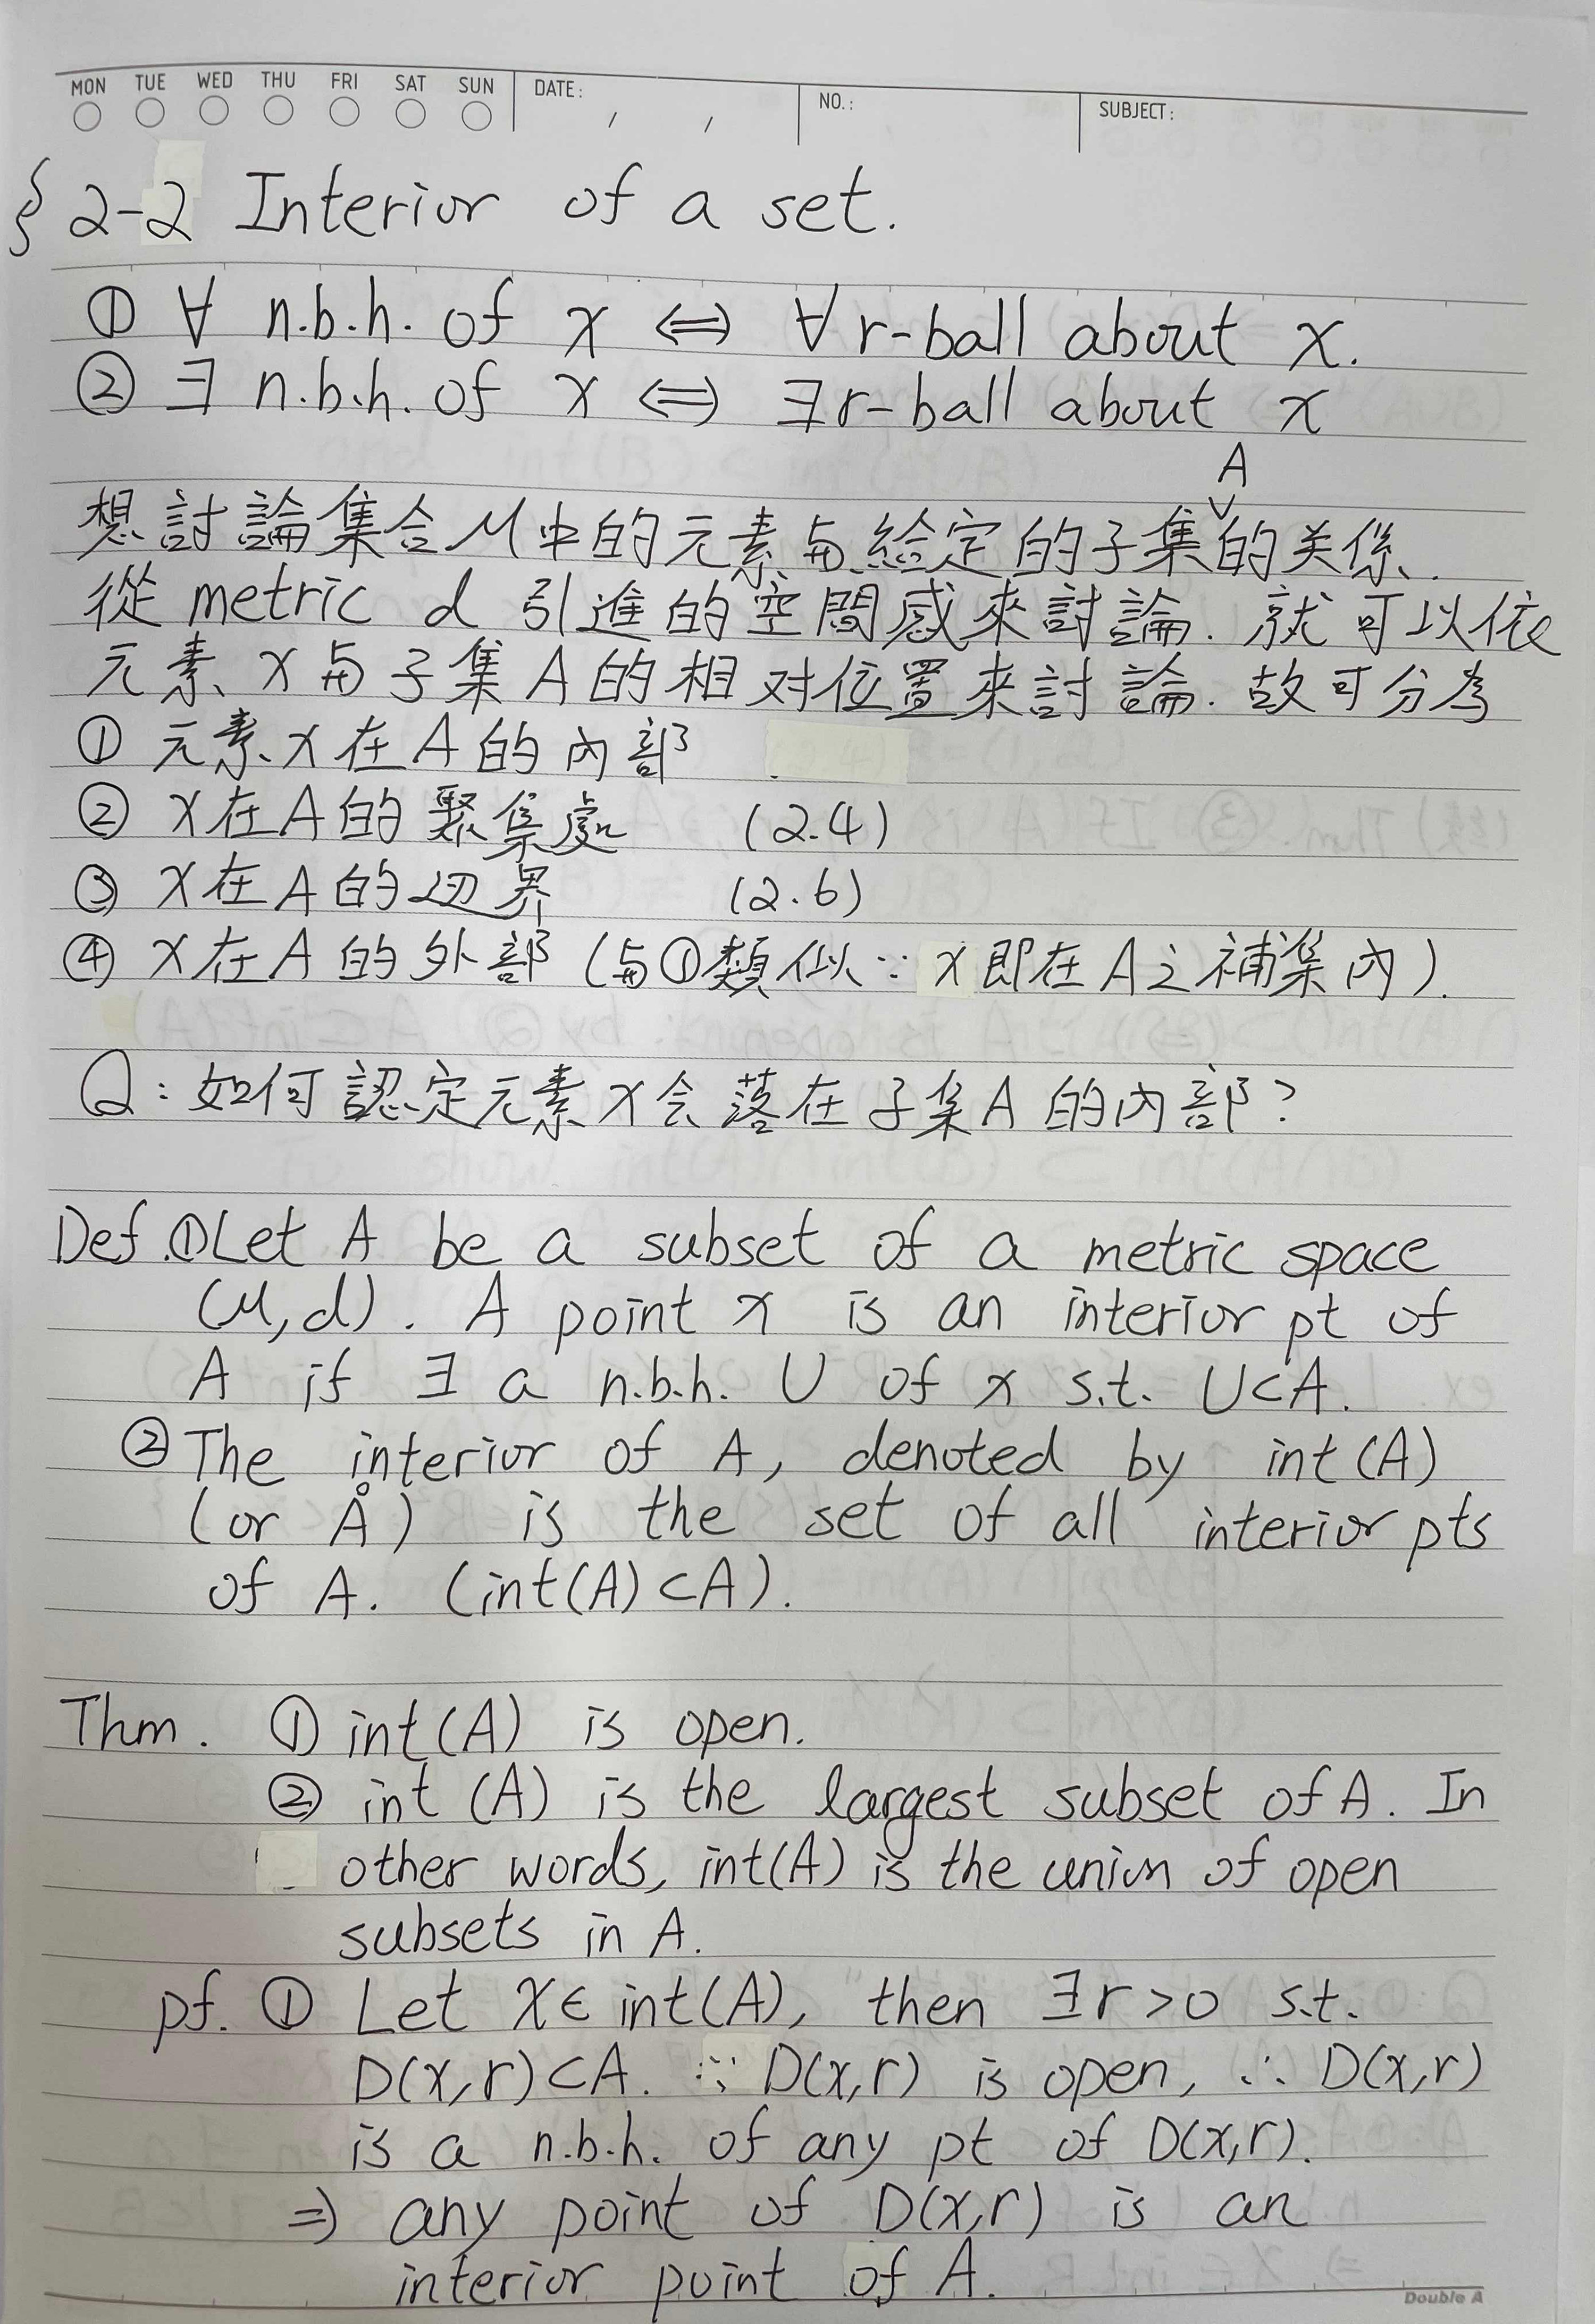 MON TUE WED THU FRI SAT SUN DATE: / / NO.: SUBJECT:
§ 2-2 Interior of a set.
① ∀ n.b.h. of x ⇔ ∀ r-ball about x.
② ∃ n.b.h. of x ⇔ ∃ r-ball about x
A
想討論集合M中的元素与給定的子集∨的关係.
從 metric d 引進的空間感來討論. 就可以依
元素 x 与子集 A 的相对位置來討論. 故可分為
① 元素 x 在 A 的內部
② x 在 A 的聚集處 (2.4)
③ x 在 A 的边界 (2.6)
④ x 在 A 的外部 (与①類似 ∵ x 即在 A 之補集內).
Q: 如何認定元素 x 会落在子集 A 的內部?
Def. ① Let A be a subset of a metric space
(M,d). A point x is an interior pt of
A if ∃ a n.b.h. U of x s.t. U⊂A.
② The interior of A, denoted by int(A)
(or Å) is the set of all interior pts
of A. (int(A)⊂A).
Thm. ① int(A) is open.
② int (A) is the largest subset of A. In
other words, int(A) is the union of open
subsets in A.
pf. ① Let x∈ int(A), then ∃ r>0 s.t.
D(x,r)⊂A. ∵ D(x,r) is open, ∴ D(x,r)
is a n.b.h. of any pt of D(x,r).
⇒ any point of D(x,r) is an
interior point of A.
Double A